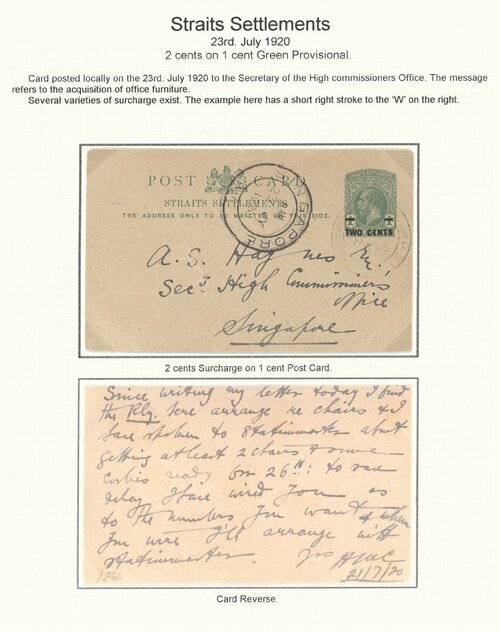 Straits Settlements
23rd. July 1920
2 cents on 1 cent Green Provisional.
Card posted locally on the 23rd. July 1920 to the Secretary of the High commissioners Office. The message
refers to the acquisition of office furniture.
Several varieties of surcharge exist. The example here has a short right stroke to the 'W' on the right.
POST CARD
STRAITS SETTLEMENTS
THE ADDRESS ONLY TO BE WRITTEN ON THIS SIDE.
SINGAPORE
STRAITS SETTLEMENTS
1 1
TWO CENTS
A. S. Haynes Esq.
Secy. High Commissioners
Office
Singapore
2 cents Surcharge on 1 cent Post Card.
Since writing my letter today I find
the Rly. here arrange re chairs & I
have spoken to stationmaster about
getting at least 2 chairs & some
ready for 26th: to save
delay I have wired you as
to the numbers you want & when
you wire I'll arrange with
stationmaster. Yrs
21/7/20
Card Reverse.